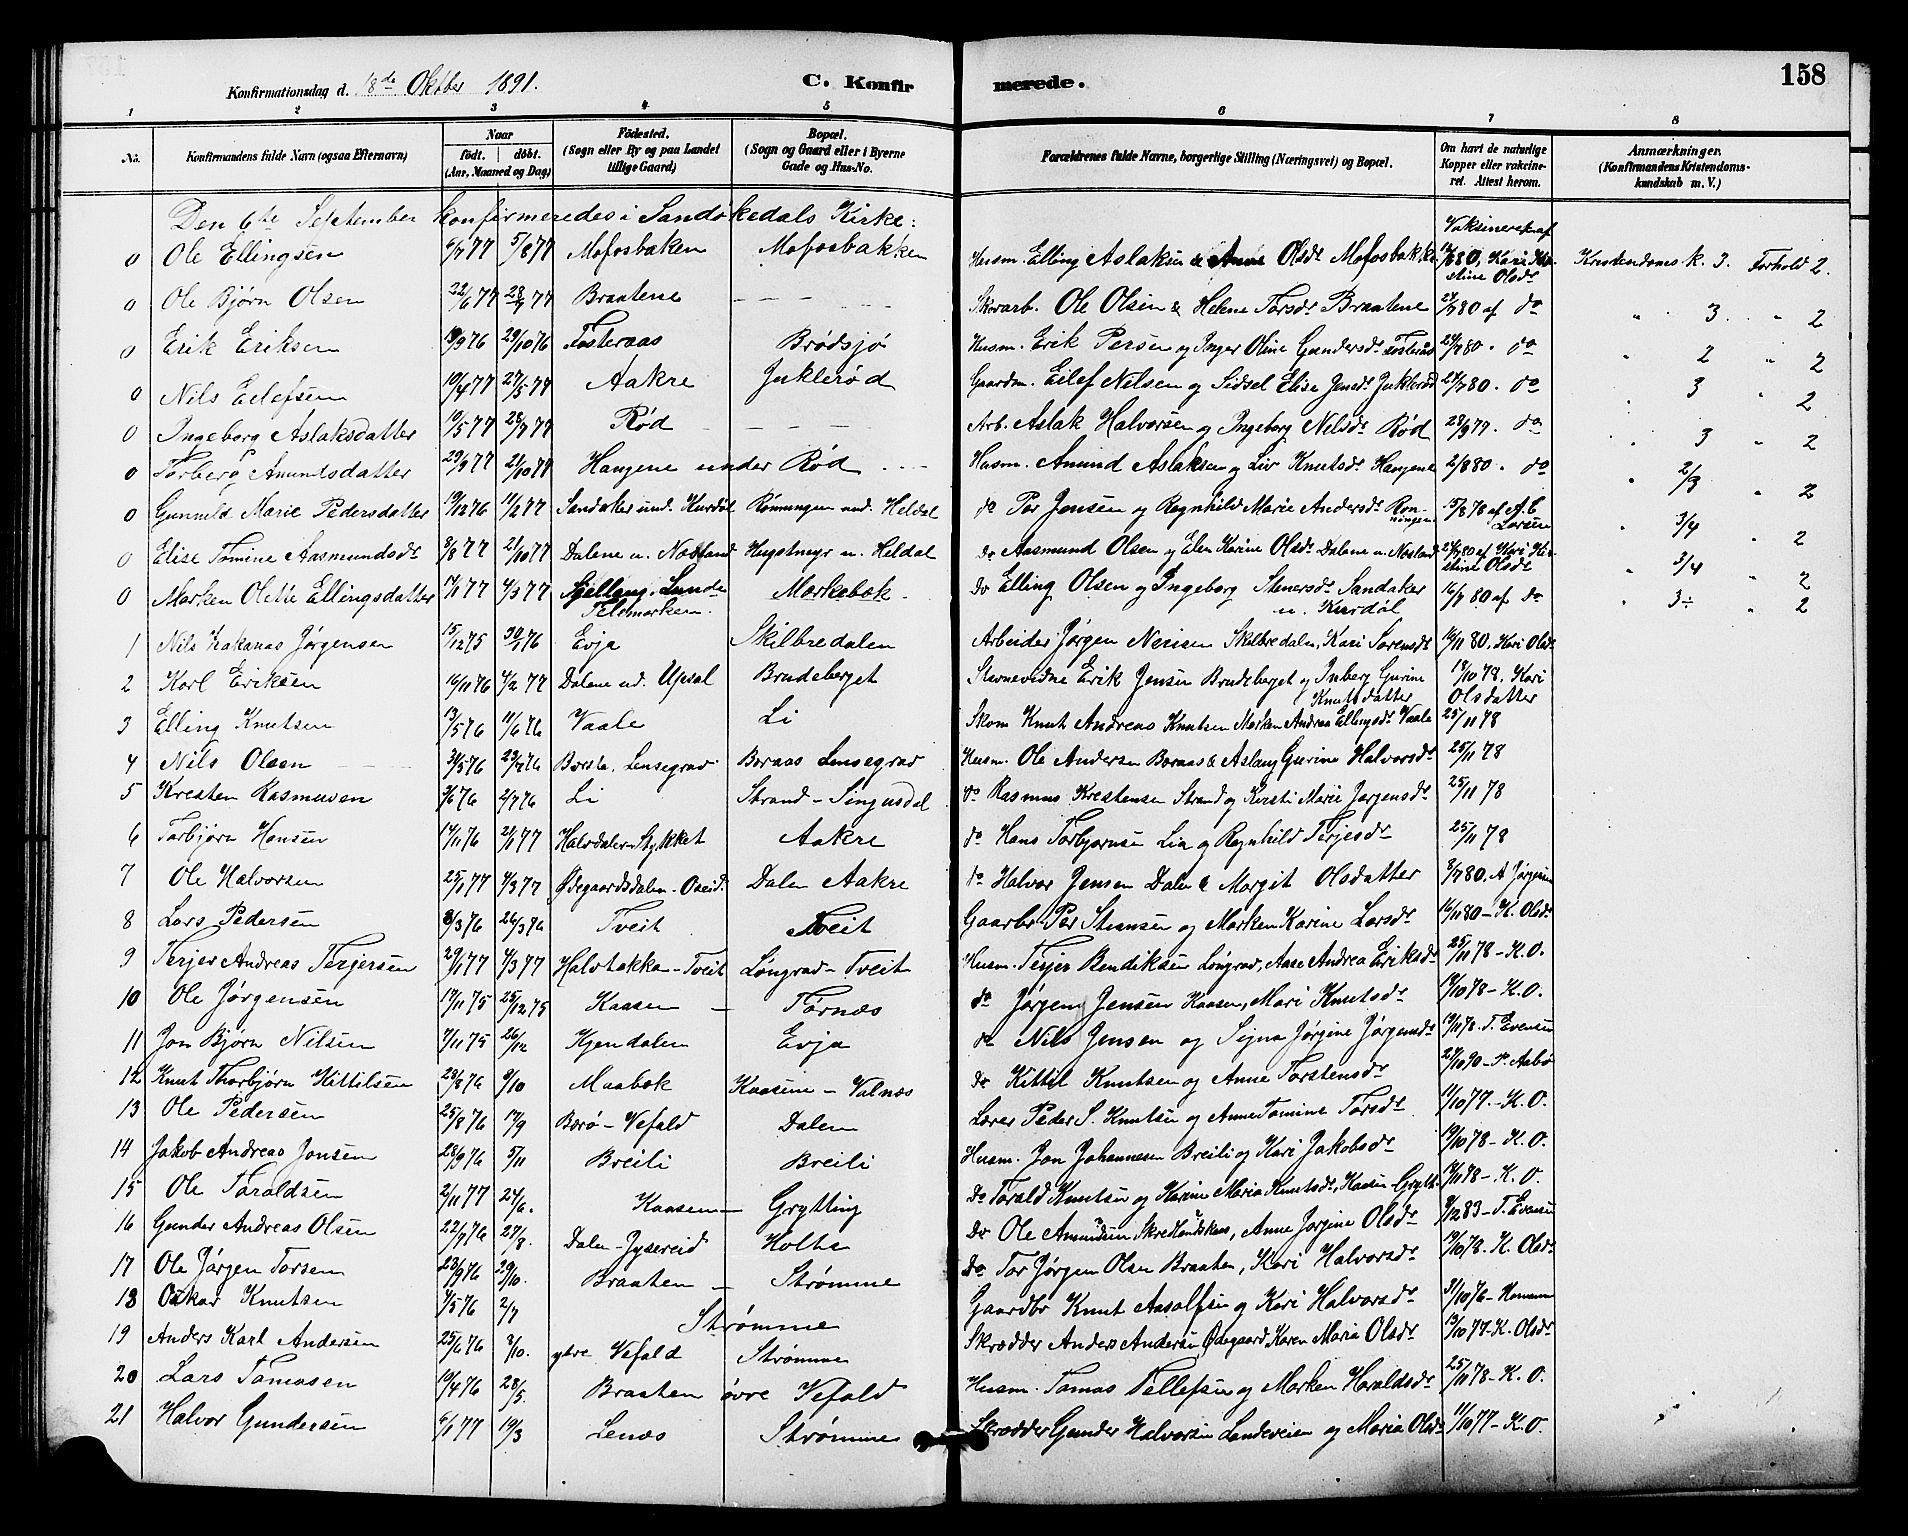 Konfirmationsdag d. 18de Oktber 1891. C. Konfirmerede. 158
1 2 3 4 5 6 7 8
No. Konfirmandens fulde Navn (ogsaa Efternavn) Naar födt. döbt. (Aar, Maaned og Dag) Födested. (Sogn eller By og paa Landet tillige Gaard) Bopæl. (Sogn og Gaard eller i Byerne Gade og Hus-No. Forældrenes fulde Navne, borgerlige Stilling (Næringsvei) og Bopæl. Om havt de naturlige Kopper eller vakcineret. Attest herom. Anmærkninger. (Konfirmandens Kristendomskundskab m. V.)
Den 6te September konfirmeredes i Sandøkedals Kirke: Vaksineret af
0 Ole Ellingsen 6/7 77 5/8 77 Mofosbaken Mofosbakken Husm. Elling Aslaksen & Anne Olsdr Mofosbakken 12/6 80, Kari Kirstine Olsdr Kristendoms k. 3. Forhold 2.
0 Ole Bjørn Olsen 22/6 77 28/7 77 Braatene — — — Skovarb. Ole Olsen & Helene Torsdr Braatene 24/7 80 af do " 3. " 2
0 Erik Eriksen 19/9 76 29/10 76 Fosteraas Brødsjø Husm. Erik Persen og Inger Oline Gundersdr Fosteraas 24/7 80. do " 2 " 2
0 Nils Eilefsen 10/4 77 27/5 77 Aakre Juklerød Gaardm. Eilef Nilsen og Sidsel Elise Jensdr Juklerød 24/7 80. do " 3 " 2
0 Ingeborg Aslaksdatter 10/5 77 28/7 77 Rød — — — Arb. Aslak Halvorsen og Ingeborg Nilsdr Rød 28/9 77. do " 3 " 2
0 Torberg Amundsdatter 29/9 77 21/10 77 Haugene under Rød — — Husm. Amund Aslaksen og Liv Knutsdr Haugene 2/8 80. do " 2/3 " 2
0 Gunnild Marie Pedersdatter 19/12 76 11/2 77 Sandaker und. Kurdøl Rønningen und. Heldal do Per Jensen og Ragnhild Marie Andersdr Rønningen 15/8 78 af A. C Larsen " 3/4 " 2
0 Elise Tomine Aasmundsdr 8/8 77 21/10 77 Dalene u. Næsland Hugstmyr u. Heldal do Aasmund Olsen og Elen Karine Olsdr Dalene u. Næsland 24/7 80 af Kari Kirstine Olsdr " 3/4 " 2
0 Marken Olette Ellingsdatter 17/1 77 4/3 77 Lunde Telemarken. Markebæk do Elling Olsen og Ingeborg Stenersdr Sandaker u. Kurdøl 16/7 80 af do " 3÷ " 2
1 Nils Zakarias Jørgensen 15/12 75 30/1 76 Evja Skilbredalen Arbeider Jørgen Nerisen Skilbredalen, Kari Sørensdr 16/11 80. Kari Olsdr
2 Karl Eriksen 16/11 76 4/2 77 Dalene ud. Upsal Brudeberget Stevnevidne Erik Jensen Brudeberget og Inberg Gurine Knutsdatter 18/10 78. Kari Olsdatter
3 Elling Knutsen 13/5 76 11/6 76 Vaale Li Skom Knut Andreas Knutsen Marken Andrea Ellingsdr Vaale 25/11 78
4 Nils Olsen 31/5 76 23/7 76 Børste, Lensegrav Boraas Lensegrav Husm. Ole Andersen Boraas & Aslaug Gurine Halvorsdr 25/11 78
5 Kresten Rasmusen 3/6 76 2/7 76 Li Strand - Singusdal do Rasmus Krestensen Strand og Kirsti Marie Jørgensdr 25/11 78
6 Torbjørn Hansen 14/11 76 2/1 77 Halvdalen Stykket Aakre do Hans Torbjørnsen Lia og Ragnhild Terjesdr 25/11 78
7 Ole Halvorsen 25/1 77 4/3 77 Ødegaardsdalen - Oseid. Dalen Aakre do Halvor Jensen Dalen & Margit Olsdatter 8/7 80. A Jørgensen
8 Lars Pedersen 8/3 76 26/3 76 Tveit Tveit Gaarbr Per Stiansen og Marken Karine Larsdr 16/11 80 - K. Olsdr
9 Terjer Andreas Terjersen 29/1 77 4/3 77 Halvtakka - Tveit Løngrav - Tveit Husm. Terjer Bendiksen Løngrav, Aase Andrea Eriksdr 25/11 78 - K.O.
10 Ole Jørgensen 17/11 75 25/12 75 Kaasen — Tørnæs do Jørgen Jensen Kaasen, Mari Knutsdr 19/10 78 - K. O.
11 Jon Bjørn Nilsen 7/11 75 26/12 Kjendalen Evja do Nils Jensen og Signa Jørgine Jørgensdr 19/11 78 - T. Evensen
12 Knut Thorbjørn Kittilsen 29/8 76 8/10 Maabæk Kaasene - Valnæs do Kittil Knutsen og Anne Torstensdr 27/10 90 - P. Aabø
13 Ole Pedersen 25/8 76 17/9 Bærø - Vefald Dalen Lærer Peder S. Knutsen og Anne Tomine Torsdr 11/10 77. - K. O.
14 Jakob Andreas Jonsen 28/9 76 5/11 Breili Breili Husm. Jon Johannesen Breili og Kari Jakobsdr 19/10 78 - K. O.
15 Ole Taraldsen 2/11 77 24/6. Kaasen — Grytting Do Tarald Knutsen og Karine Maria Knutsdr, Kaasen Grytt. 19/11 78 - K. O.
16 Gunder Andreas Olsen 22/7 76 27/8. Dalen - Jysereid Holte Do Ole Amundsen Skredlandskaas, Anne Jørgine Olsdr 9/12 83 - T. Evensen
17 Ole Jørgen Torsen 23/9 76 29/10. Braaten — Strømme Do Tor Jørgen Olsen Braaten, Kari Halvorsdr 19/10 78 - K. Olsdr
18 Oskar Knutsen 7/5 76 2/7 Strømme Gaardbr Knut Aasolfsen og Kari Halvorsdr 31/10 76 - Homann
19 Anders Karl Andersen 25/6 76 3/10. ytre Vefald Strømme Skrædder Anders Andersen Ødegaard, Karen Maria Olsdr 13/10 77 - K. Olsdr
20 Lars Tomasen 10/4 76 28/5 Braaten øvre Vefald Husm. Tomas Tellefsen og Marken Haraldsdr 25/11 78 - K. O.
21 Halvor Gundersen 6/1 77 19/3 Lenæs Strømme Skrædder Gunder Halvorsen Landeveien og Maria Olsdr 11/10 77 - K. O.